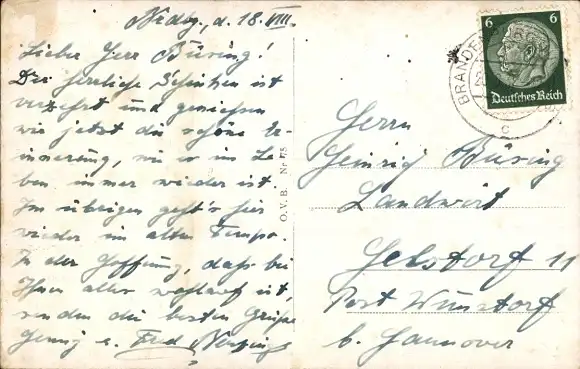 Nrdbg., d. 18. VIII.
Lieber Herr Büsing!
Der herrliche Schinken ist
verzehrt und geniessen
wir jetzt die schöne Er-
innerung, wie es im Le-
ben immer wieder ist.
Im übrigen geht's hier
wieder im alten Tempo.
In der Hoffung, dass bei
Ihnen alles wohlauf ist,
senden die besten Grüsse
u. Fred
O.V.B. Nr. 75
BRANDE
6 6
Deutsches Reich
c
Herrn
Heinrich Büsing
Landwirt
11
Post Wunstorf
b. Hannover